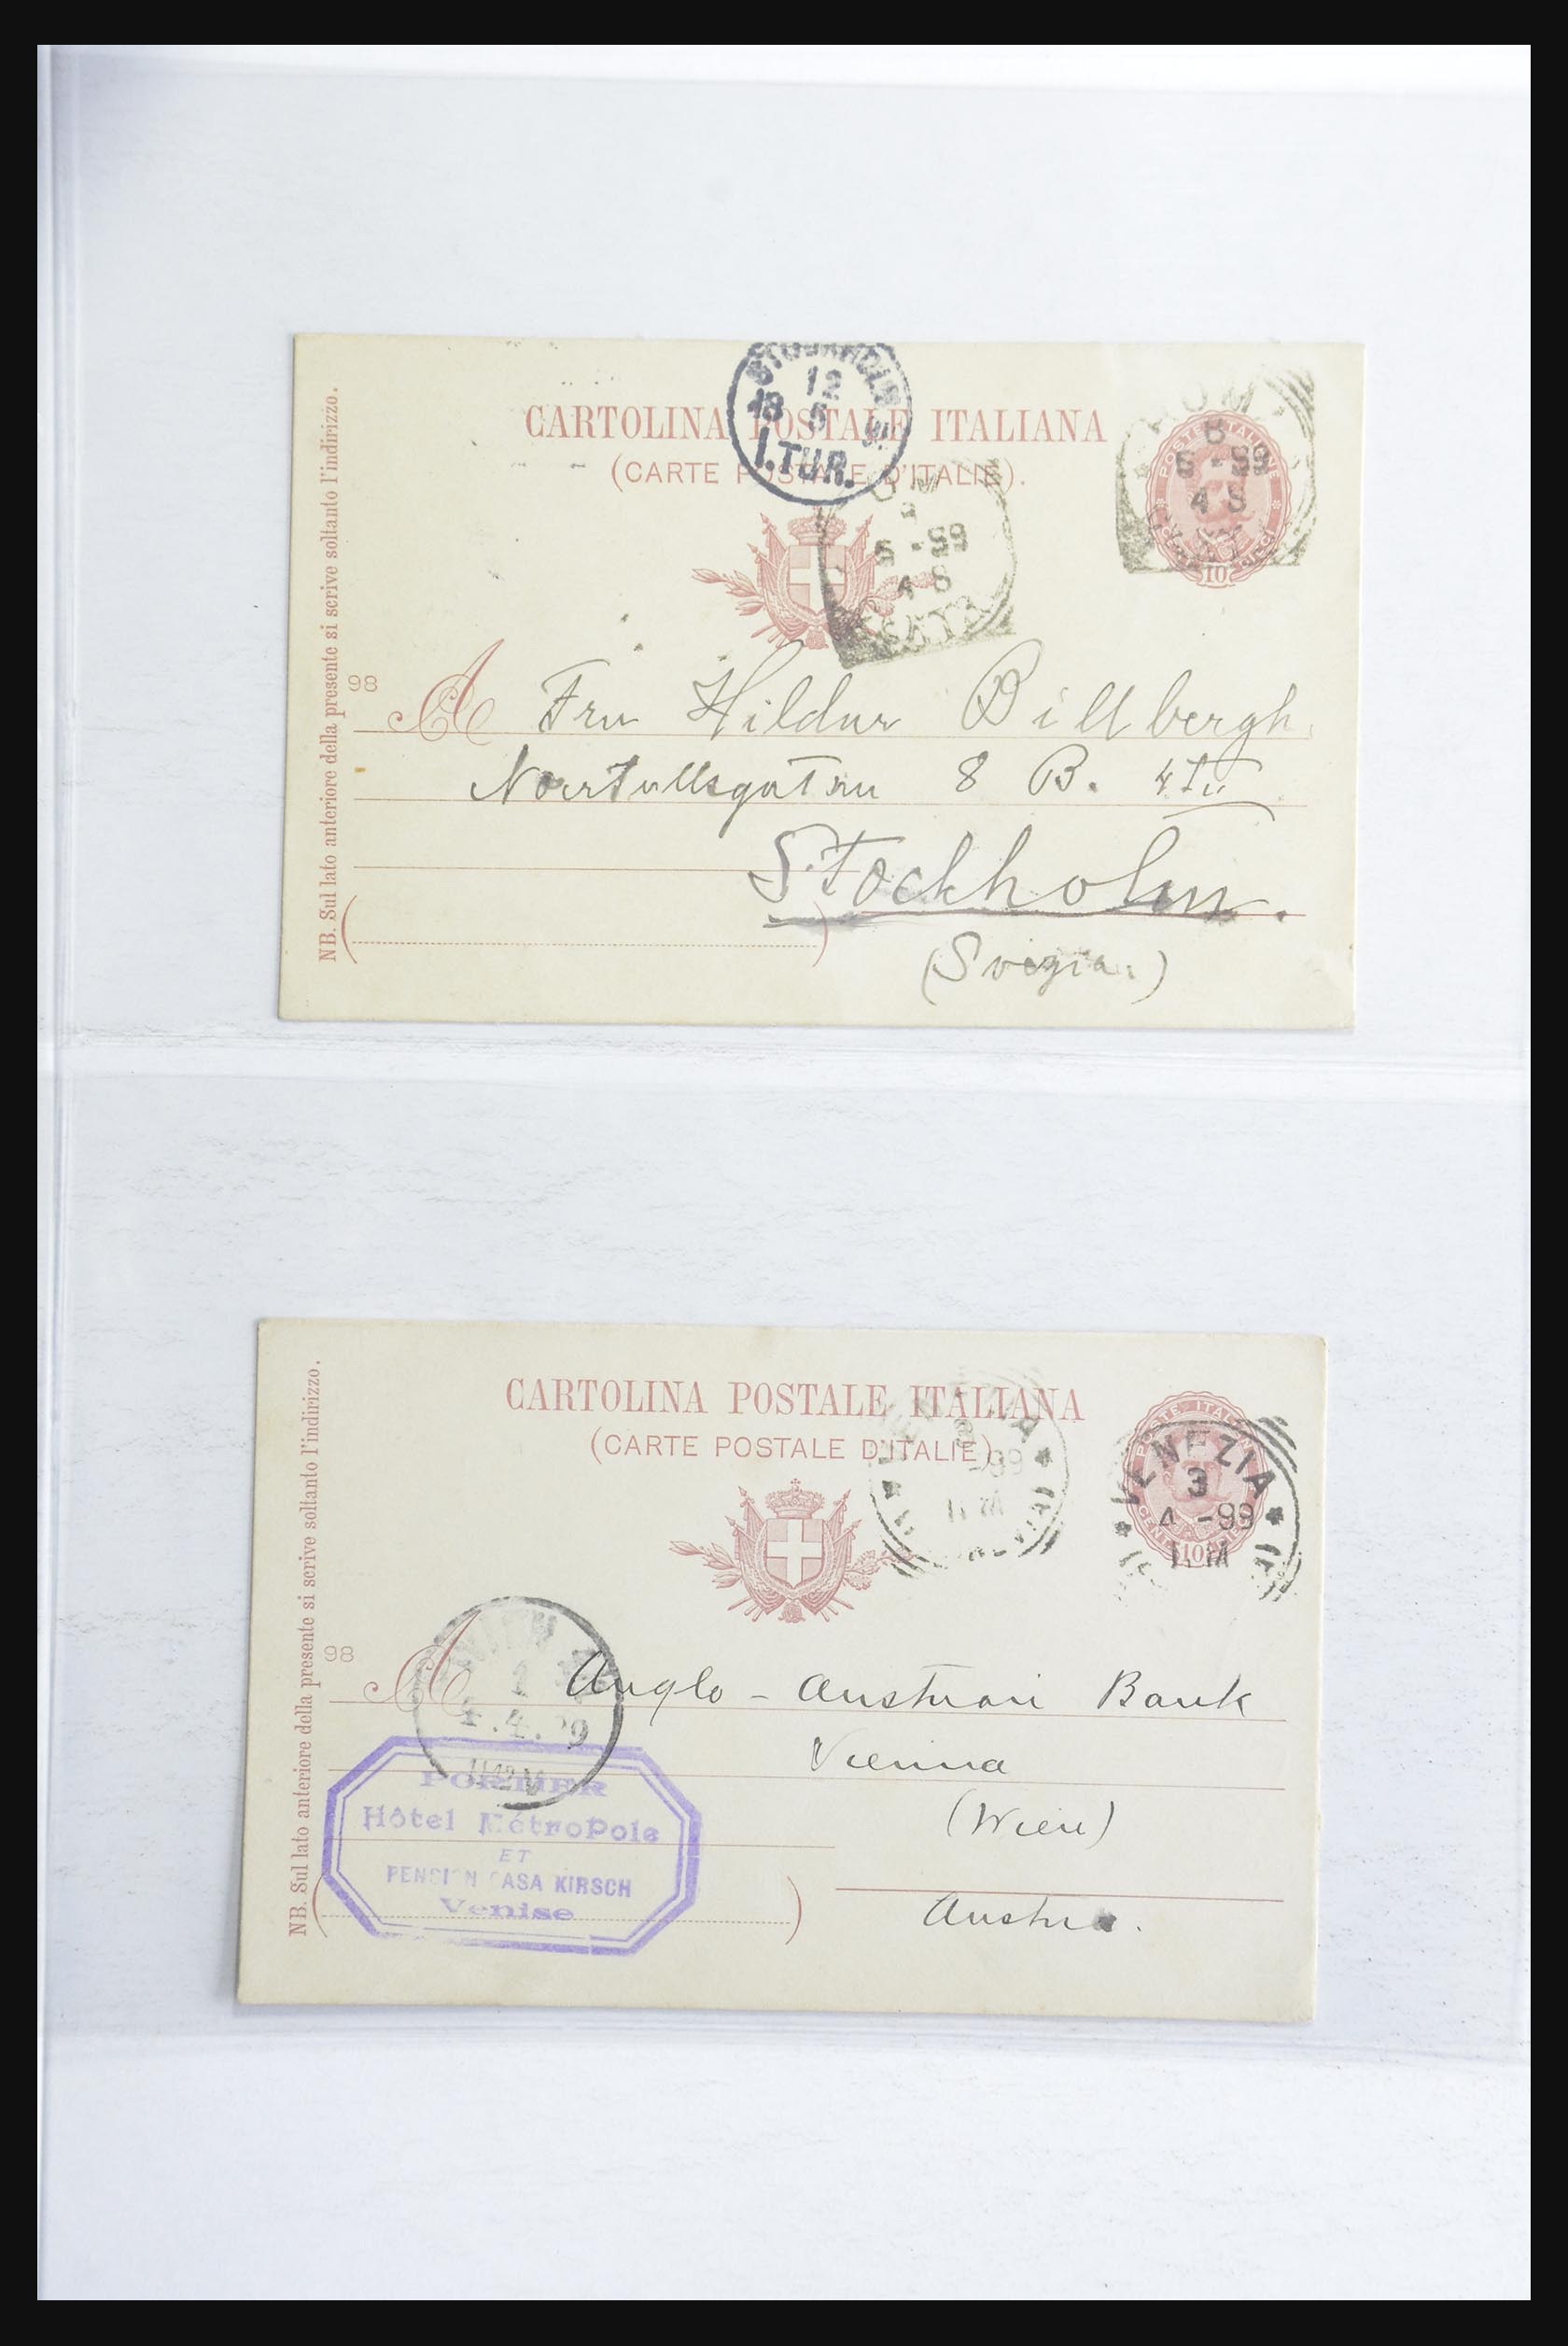 CARTOLINA POSTALE ITALIANA
(CARTE POSTALE D'ITALIE).
STOCKHOLM
12
5
1.TUR.
5 -99
4 S
8
5 -99
4 S
POSTE ITALIANE
10
NB. Sul lato anteriore della presente si scrive soltanto l'indirizzo.
98
A Fru Hildur Billbergh
Norrtullsgatan 8 B. 4
Stockholm.
(Svezia.)
CARTOLINA POSTALE ITALIANA
(CARTE POSTALE D'ITALIE).
3
-99
VENEZIA
3
4 -99
10
NB. Sul lato anteriore della presente si scrive soltanto l'indirizzo.
98
A Anglo - Austrian Bank
Vienna
(Wien)
Austria.
WIEN
4.99
PORTIER
Hôtel Métropole
ET
PENSION CASA KIRSCH
Venise